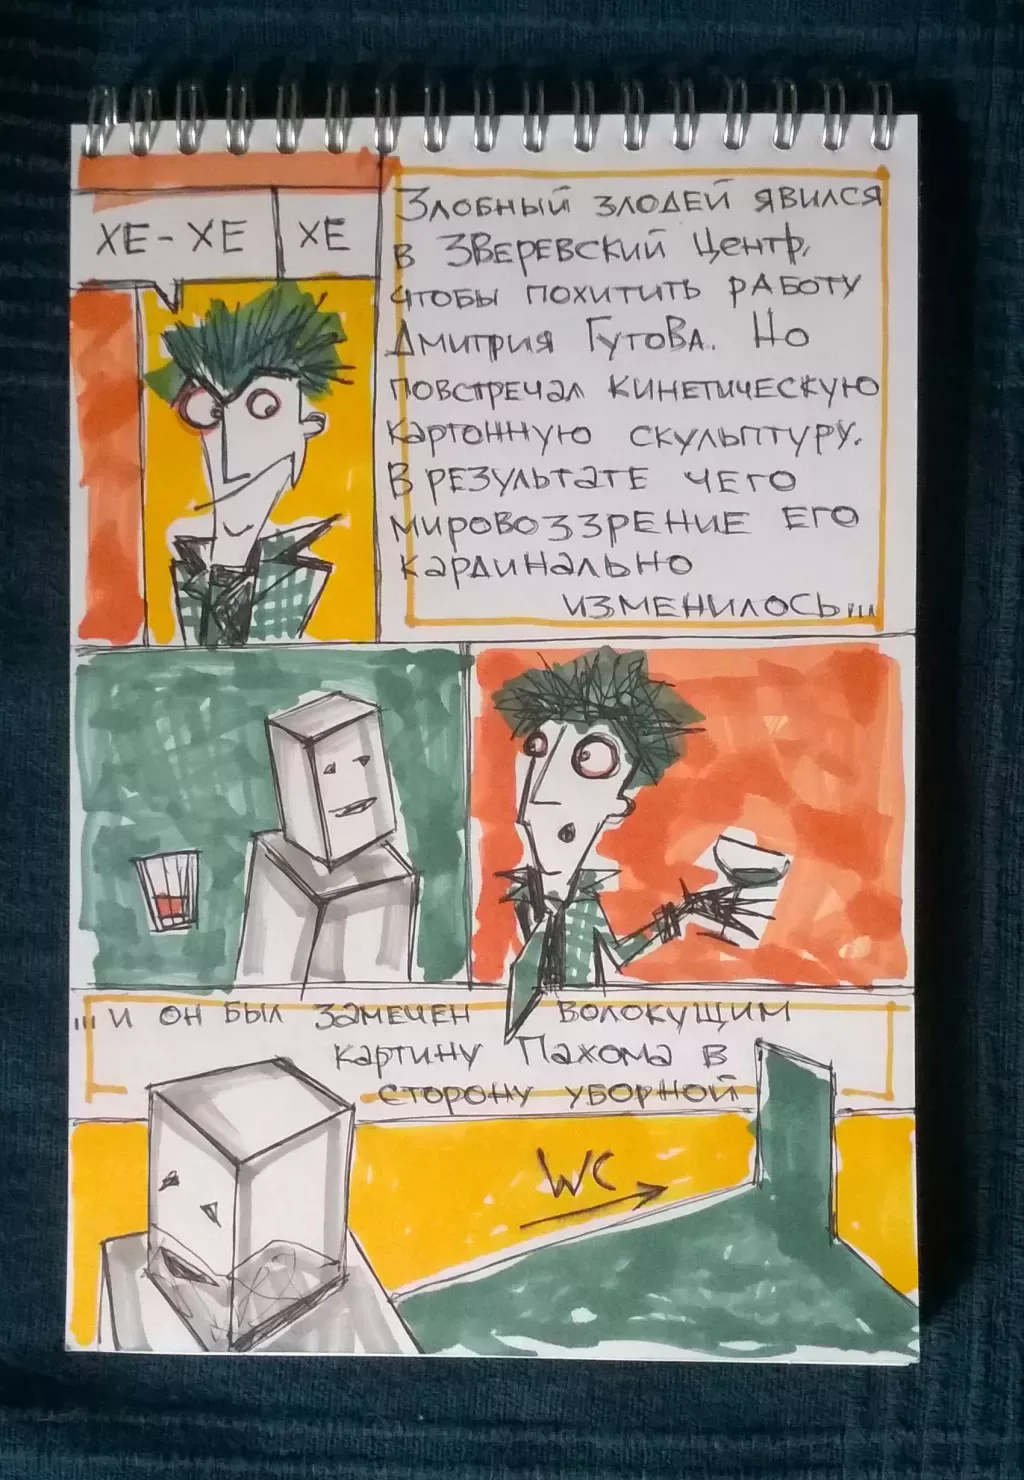 ХЕ-ХЕ ХЕ
Злобный злодей явился
в Зверевский центр,
чтобы похитить работу
Дмитрия Гутова. Но
повстречал кинетическую
картонную скульптуру.
В результате чего
мировоззрение его
кардинально
изменилось...
...и он был замечен волокущим
картину Пахома в
сторону уборной
WC